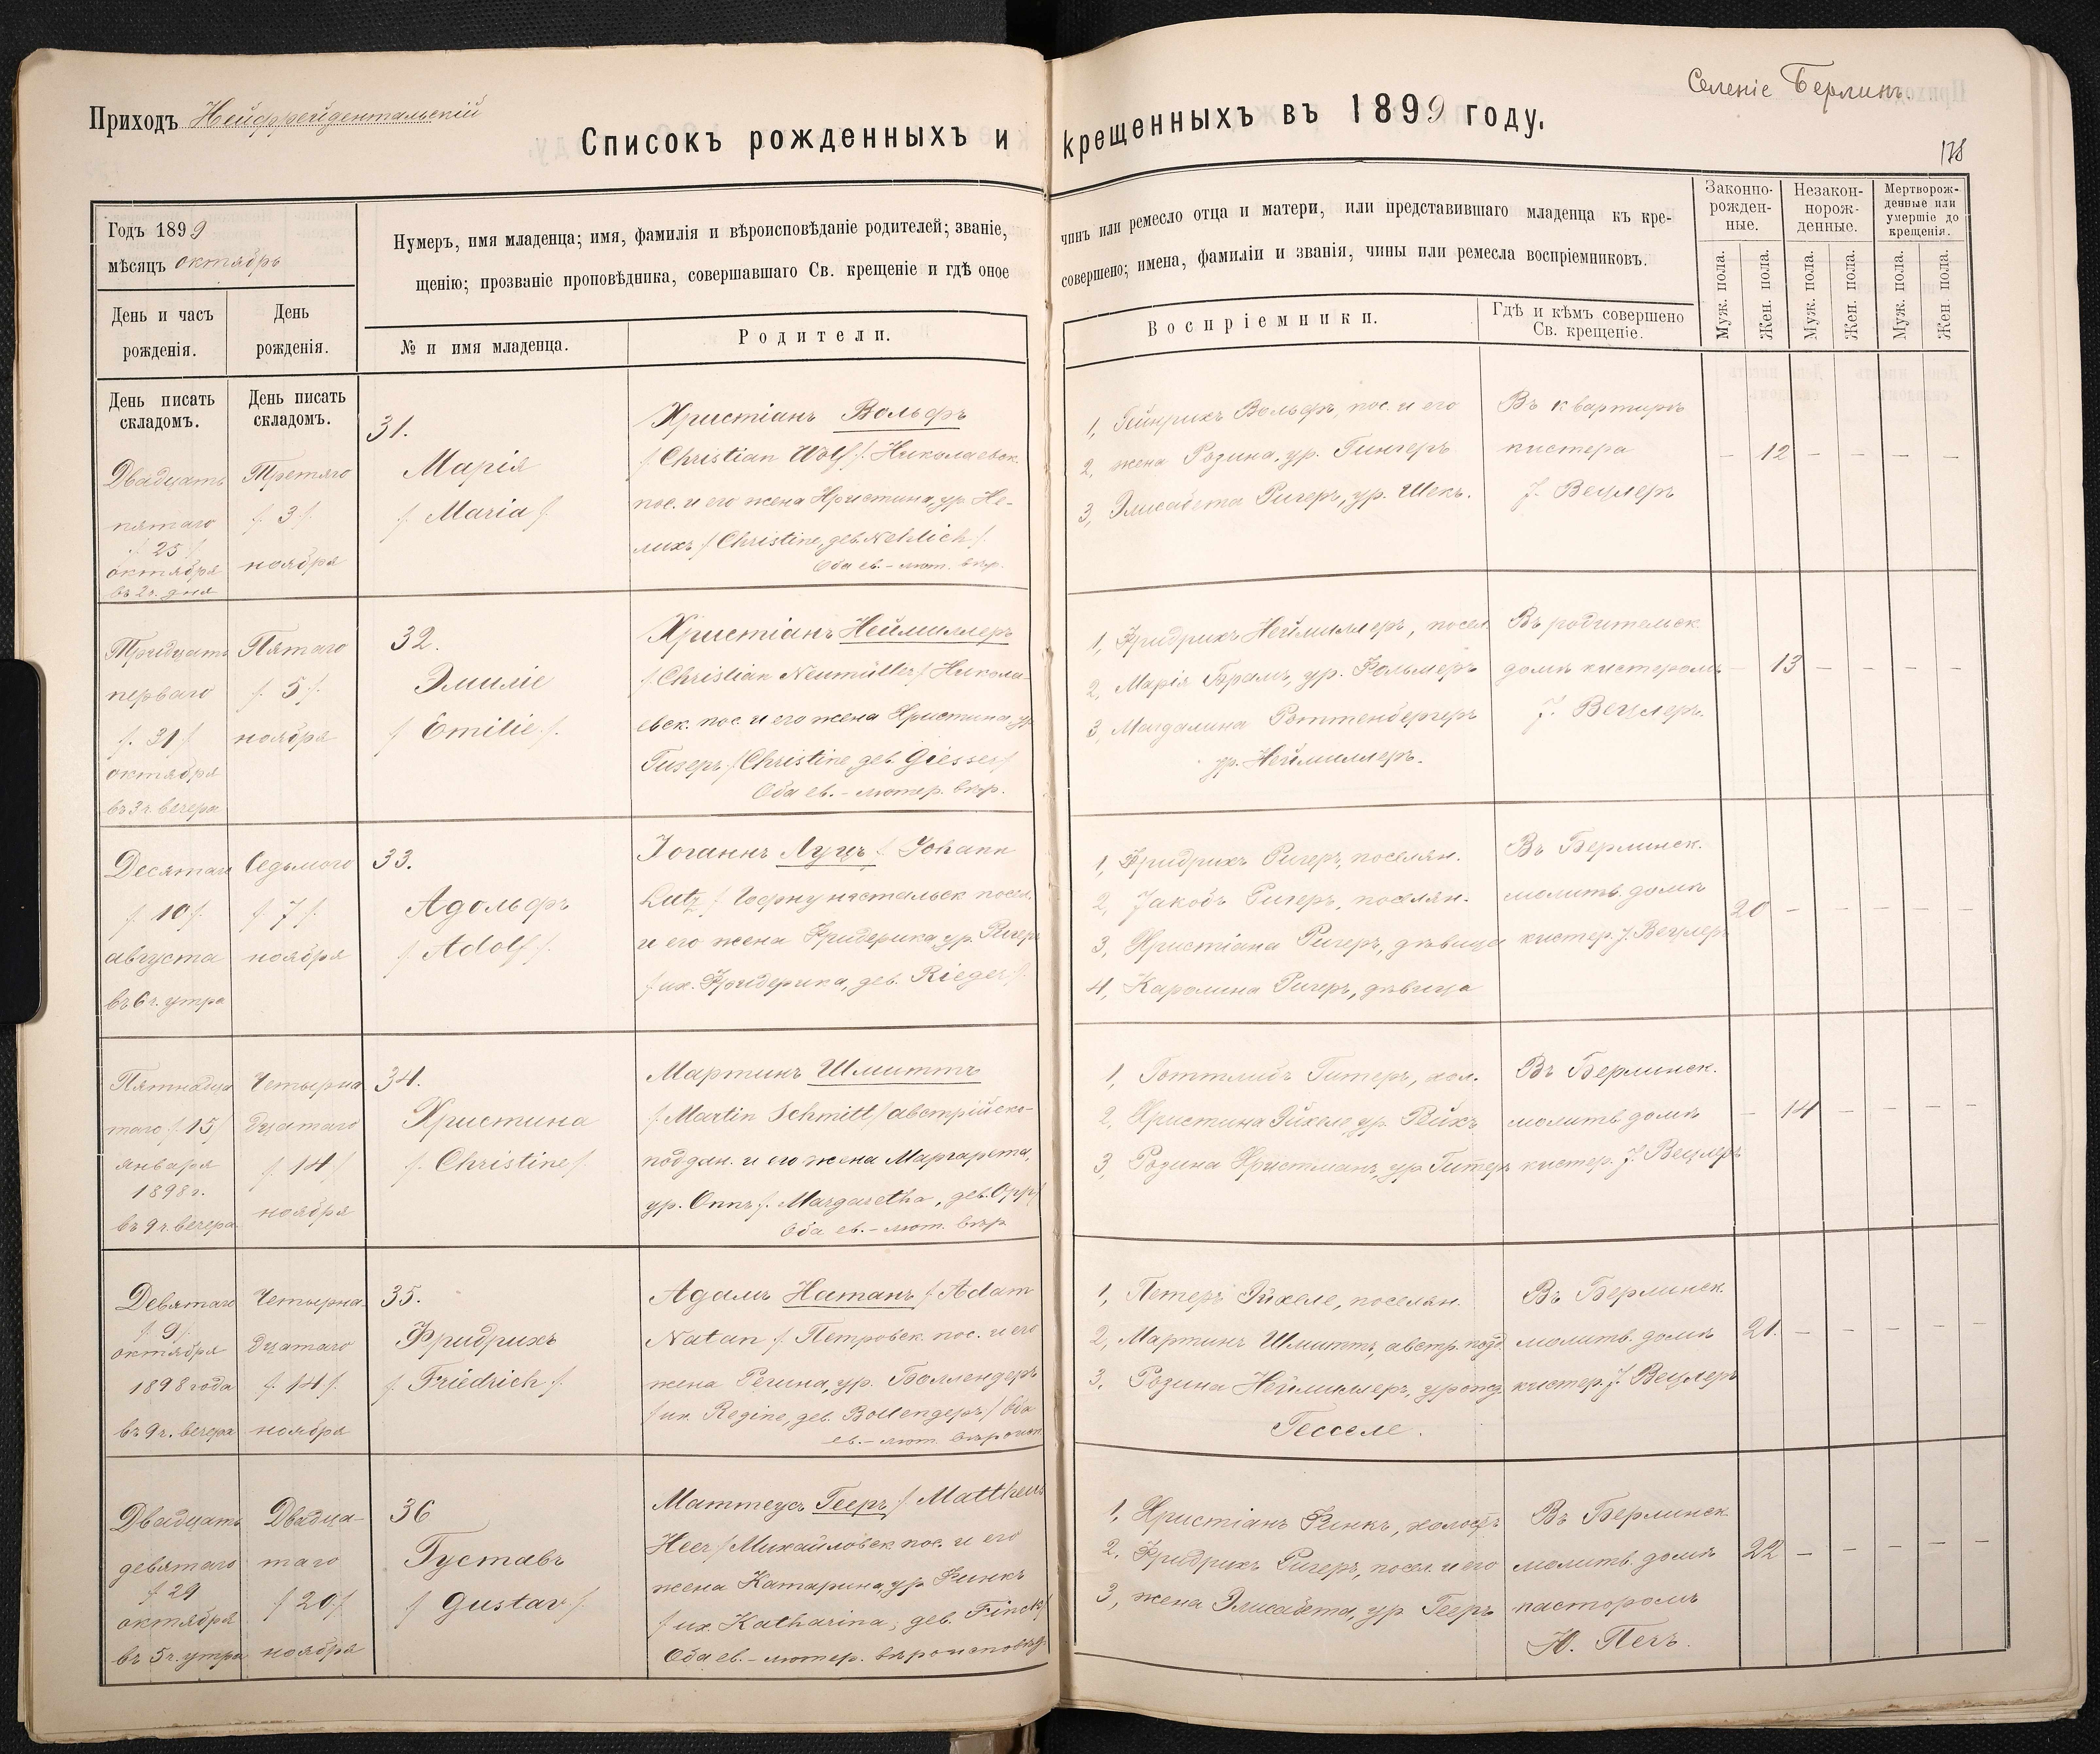 Приходъ Нейфрейдентальскій
Селеніе Берлинъ.
Списокъ рожденныхъ и крещенныхъ въ 1899 году.
178
Годъ 1899
мѣсяцъ октябрь
Нумеръ, имя младенца; имя, фамилія и вѣроисповѣданіе родителей; званіе, чинъ или ремесло отца и матери, или представившаго младенца къ кре-
щенію; прозваніе проповѣдника, совершавшаго Св. крещеніе и гдѣ оное совершено; имена, фамиліи и званія, чины или ремесла воспріемниковъ.
Законно-
рожден-
ные.
Незакон-
норож-
денные.
Мертворож-
денные или
умершіе до
крещенія.
День и часъ
рожденія.
День
рожденія.
№ и имя младенца.
Родители.
Воспріемники.
Гдѣ и кѣмъ совершено
Св. крещеніе.
Муж. пола.
Жен. пола.
Муж. пола.
Жен. пола.
Муж. пола.
Жен. пола.
День писать
складомъ.
День писать
складомъ.
Двадцать
пятаго
/. 25 /.
октября
въ 2ч. дня
Третяго
/. 3 /.
ноября
31.
Марія
/. Maria /.
Христіанъ Вольфъ
/. Christian Wolf /. Николаевск.
пос. и его жена Христина, ур. Не-
лихъ /. Christine, geb. Nehlich /.
Оба ев.-лют. вѣр.
1, Гейнрихъ Вольфъ, пос. и его
2, жена Розина, ур. Гингеръ
3, Элисабета Ригеръ, ур. Шекъ.
Въ квартирѣ
кистера
J. Вецлеръ
– 12 – – – –
Тридцать
перваго
/. 31 /.
октября
въ 3ч. вечера
Пятаго
/. 5 /.
ноября
32.
Эмиліе
/. Emilie /.
Христіанъ Неймиллеръ
/. Christian Neumüller /. Никола-
евск. пос. и его жена Христина, ур.
Гизеръ /. Christine geb. Giesser /.
Оба ев.-лютер. вѣр.
1, Фридрихъ Неймиллеръ, посел.
2, Марія Брамъ, ур. Фольмеръ
3, Магдалина Роттенбергеръ
ур. Неймиллеръ.
Въ родительск.
домѣ кистеромъ
J. Вецлеръ.
– 13 – – – –
Десятаго
/. 10 /.
августа
въ 6ч. утра
Седьмого
/. 7 /.
ноября
33.
Адольфъ
/. Adolf /.
Іоганнъ Луцъ /. Johann
Lutz /. посел.
и его жена Фридерика, ур. Ригеръ
/. их. Фридерика, geb. Rieger /.
1, Фридрихъ Ригеръ, поселян.
2, Jакобъ Ригеръ, поселян.
3, Христіана Ригеръ, дѣвица
4, Каролина Ригеръ, дѣвица
Въ Берлинск.
молитв. домѣ
кистер. J. Вецлеръ
20 – – – – –
Пятнадца
таго /. 15 /.
января
1898 г.
въ 9ч. вечера
Четырна
дцатаго
/. 14 /.
ноября
34.
Христина
/. Christine /.
Мартинъ Шмиттъ
/. Martin Schmitt /. австрійско-
поддан. и его жена Маргарета,
ур. Оппъ /. Margaretha, geb. Opp /.
Оба ев.-лют. вѣр.
1, Готтлибъ Гитеръ, хол.
2, Христина Эйхеле, ур. Рейхъ
3, Розина Христманъ, ур. Гитеръ
Въ Берлинск.
молитв. домѣ
кистер. J. Вецлеръ
– 14 – – – –
Девятаго
/. 9 /.
октября
1898 года
въ 9ч. вечера
Четырна-
дцатаго
/. 14 /.
ноября
35.
Фридрихъ
/. Friedrich /.
Адамъ Натанъ /. Adam
Natan /. Петровск. пос. и его
жена Регина, ур. Боллендеръ
/. их. Regine, geb. /. Оба
ев.-лют. вѣроисп.
1, Петеръ Эйхеле, поселян.
2, Мартинъ Шмиттъ, австр. под.
3, Розина Неймиллеръ, урожд.
Гесселе.
Въ Берлинск.
молитв. домѣ
кистер. J. Вецлеръ
21. – – – – –
Двадцать
девятаго
/. 29
октября
въ 5ч. утра
Двадца-
таго
/. 20 /.
ноября
36
Густавъ
/. Gustav /.
Маттеусъ Гееръ /. Mattheus
Heer /. Михайловск. пос. и его
жена Катарина, ур. Финкъ
/. их. Katharina, geb. Finck /.
Оба ев.-лютер. вѣроисповѣд.
1, Христіанъ Финкъ, холостъ
2, Фридрихъ Ригеръ, посел. и его
3, жена Элисабета, ур. Гееръ
Въ Берлинск.
молитв. домѣ
пасторомъ
Ю. Печъ.
22 – – – – –